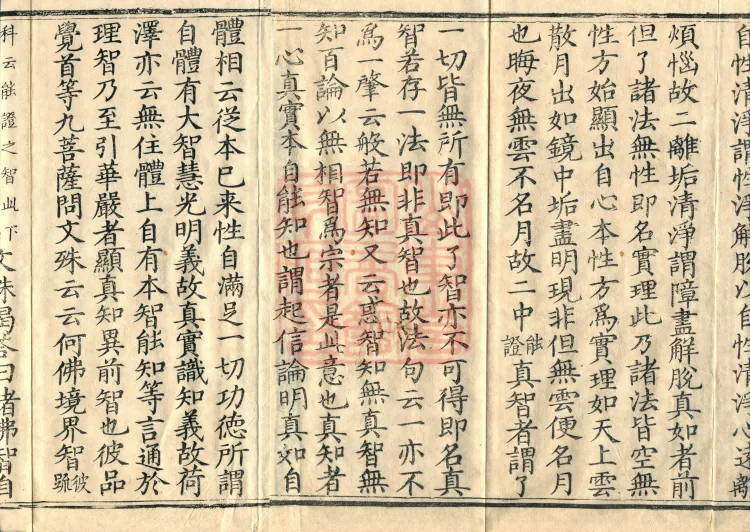 自性清淨謂性淨解脫以自性清淨心遠離
煩惱故二離垢清淨謂障盡解脫真如者前
但了諸法無性即名實理此乃諸法皆空無
性方始顯出自心本性方為實理如天上雲
散月出如鏡中垢盡明現非但無雲便名月
也晦夜無雲不名月故二中能證真智者謂了
一切皆無所有即此了智亦不可得即名真
智若存一法即非真智也故法句云一亦不
為一肇云般若無知又云惑智知無真智無
知百論以無相智為宗者是此意也真知者
一心真實本自能知也謂起信論明真如自
體相云從本已来性自滿足一切功德所謂
自體有大智慧光明義故真實識知義故荷
澤亦云無住體上自有本智能知等言通於
理智乃至引華嚴者顯真知異前智也彼品
覺首等九菩薩問文殊云云何佛境界智彼䟽
科云能證之智此下文殊曷答曰者佛智自